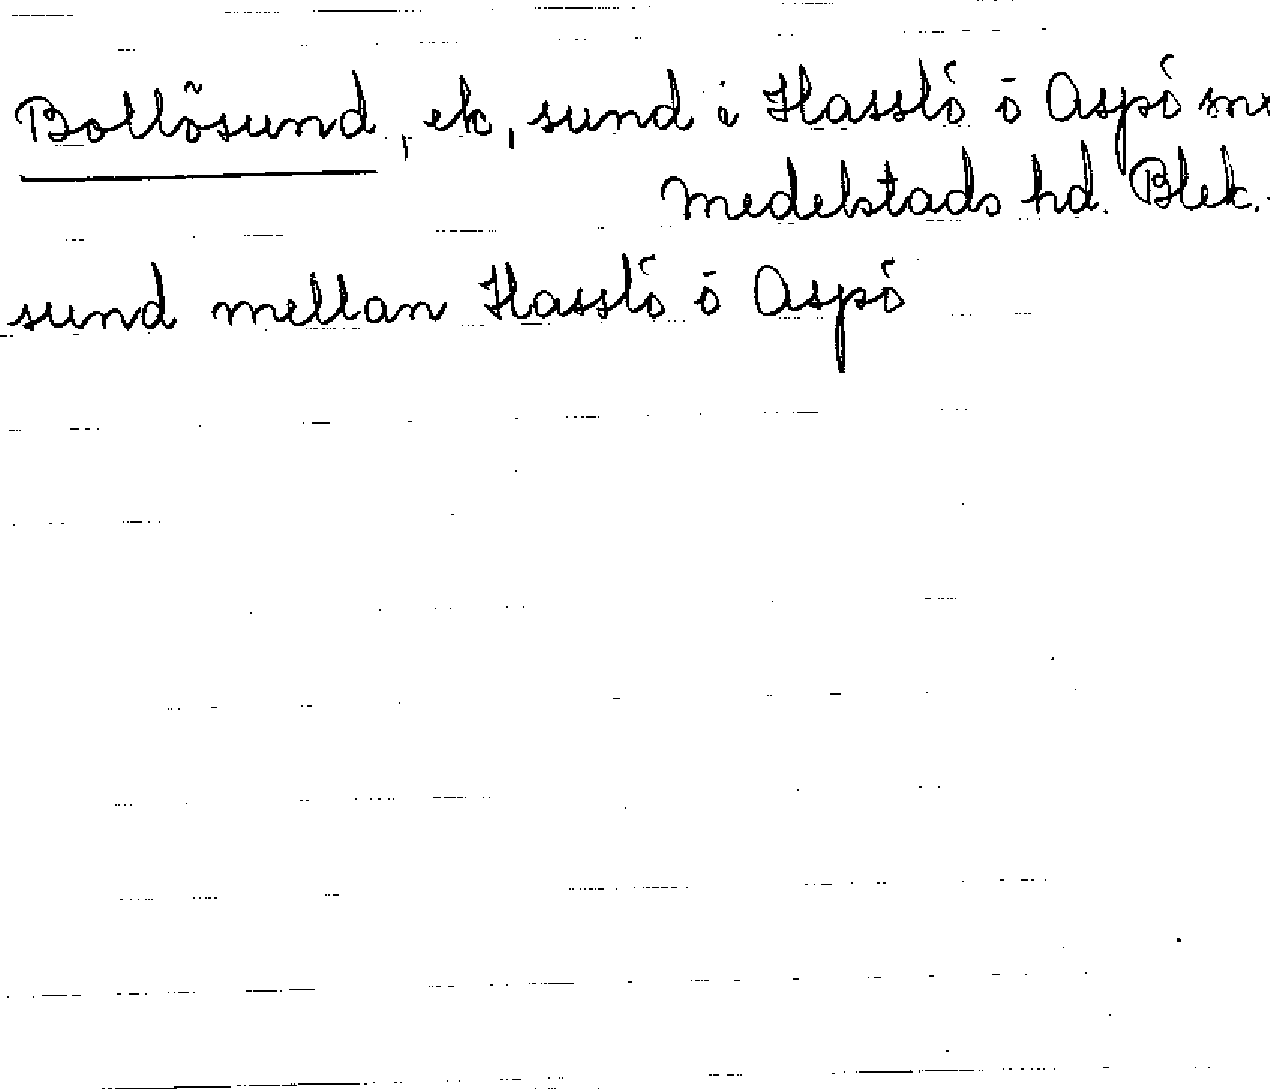 Bollösund, ek, sund i Hasslö o Aspö
Medelstads hd. Blek.
sund mellan Hasslö o Aspö